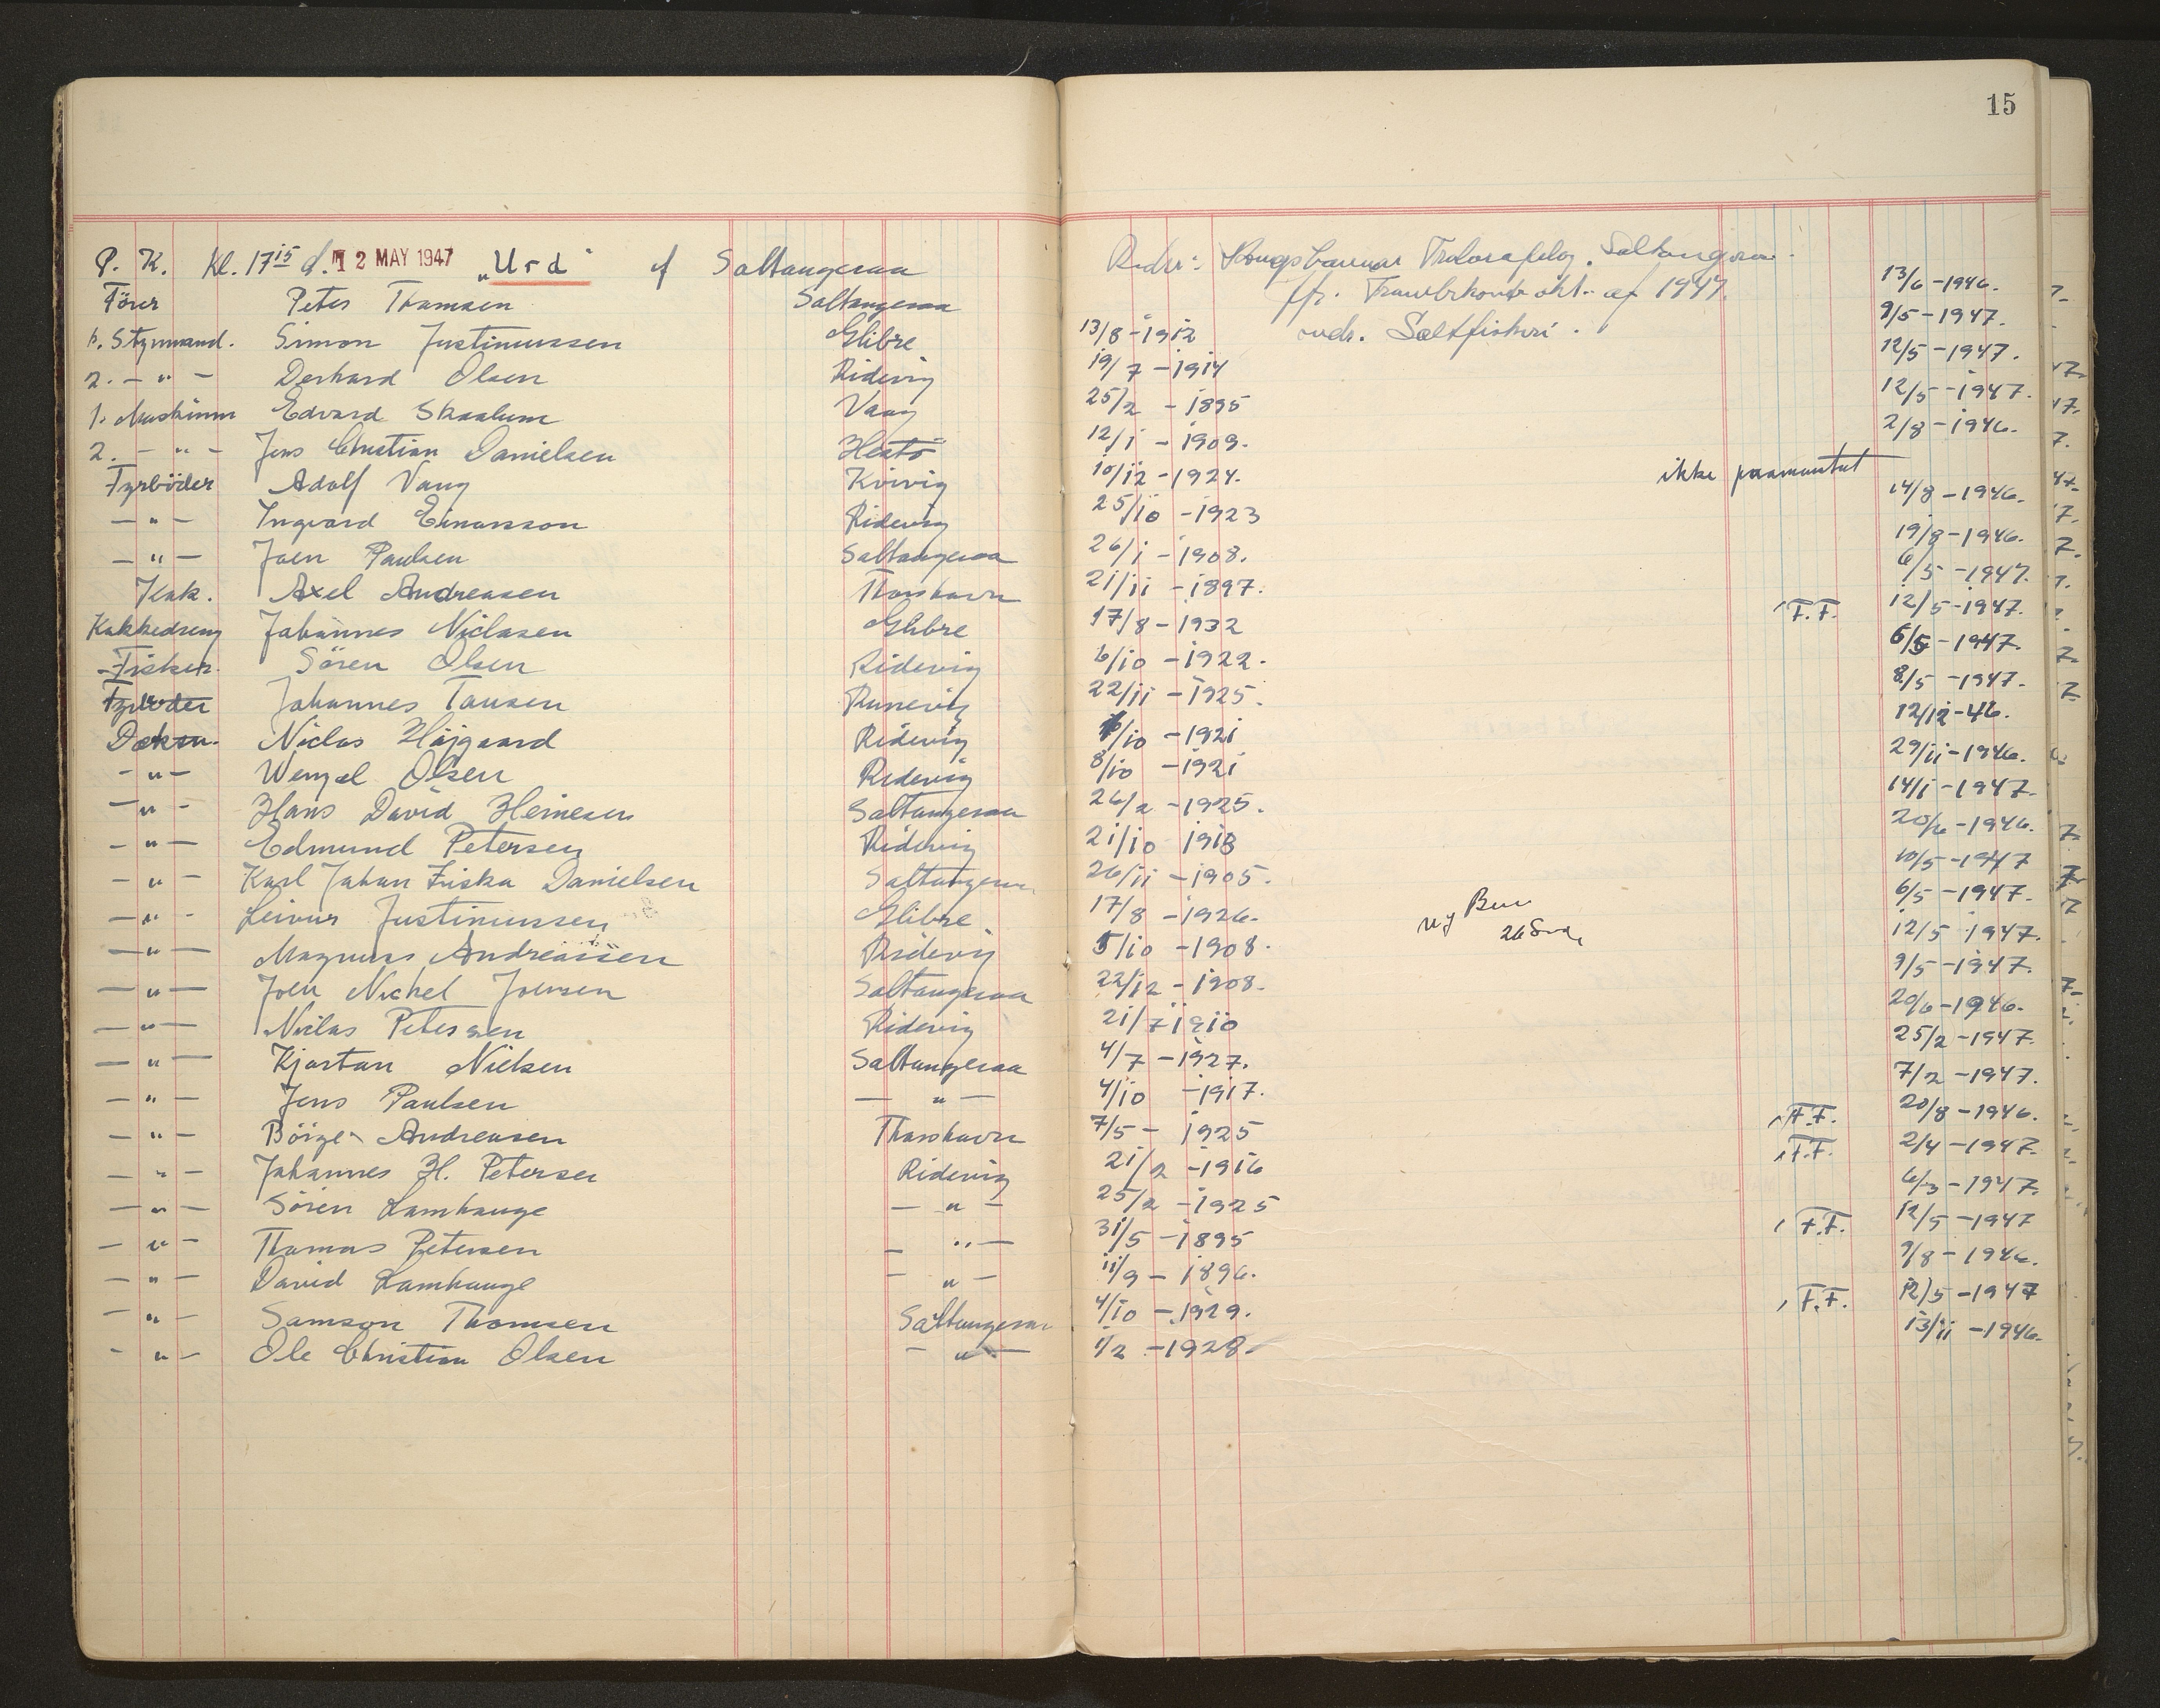 15
P. K. Kl. 17 15 d. 12 MAY 1947 „Urd“ af Saltangeraa Reder: Trolarafelag, Saltangeraa.
Förer Peter Thomsen Saltangeraa ffr. af 1947. 13/6 -1946.
1. Styrmand. Simon Justinussen Glibre 13/8 -1912 Saltfiskeri. 9/5 -1947.
2. - " - Derhard Olsen Ridevig 19/7 -1914 12/5 -1947.
1. Maskinm Edvard Skaalum Vaag 25/2 - 1895 12/5 -1947.
2. - " - Jens Christian Danielsen Hestö 12/1 - 1909. 2/8 -1946.
Fyrböder Adolf Vang Kvivig 10/12 -1924. ikke paamönstret
- " - Ingvard Einarsson Ridevig 25/10 -1923 14/8 -1946.
- " - Joen Paulsen Saltangeraa 26/1 - 1908. 19/8 -1946.
Kok. Axel Andreasen Thorshavn 21/11 - 1897. 6/5 -1947.
Kokkedreng Johannes Niclasen Glibre 17/8 -1932 F.F. 12/5 -1947.
Fisker. Sören Olsen Ridevig 6/10 -1922. 6/5 -1947.
Fyrböder Johannes Tausen Runevig 22/11 -1925. 8/5 -1947.
Dæksm. Niclas Höjgaard Ridevig /10 -1921 12/12 -46.
- " - Wenzel Olsen Ridevig 8/10 -1921 29/11 -1946.
- " - Hans David Heinesen Saltangeraa 26/2 -1925. 14/1 -1947.
- " - Edmund Petersen Ridevig 21/10 1918 20/6 -1946.
- " - Karl Johan Ziska Danielsen Saltangeraa 26/11 -1905. 10/5 -1947
- " - Leivur Justinussen Glibre 17/8 -1926. 6/5 -1947.
- " - Magnus Andreassen Ridevig 5/10 -1908. 12/5 1947.
- " - Joen Nickel Joensen Saltangeraa 22/12 -1908. 9/5 -1947.
- " - Niclas Petersen Ridevig 21/7 1910 20/6 -1946.
- " - Kjartan Nielsen Saltangeraa 4/7 -1927. 25/2 -1947.
- " - Jens Paulsen - " - 4/10 -1917. 7/2 -1947.
- " - Börge Andreasen Thorshavn 7/5 - 1925 F.F. 20/8 -1946.
- " - Johannes H. Petersen Ridevig 21/2 -1916 F.F. 2/4 -1947.
- " - Sören Lamhauge - " - 25/2 -1925 6/3 -1947.
- " - Thomas Petersen - " - 31/5 -1895 F.F. 12/5 -1947
- " - David Lamhauge - " - 11/9 - 1896. 9/8 - 1946.
- " - Samson Thomsen Saltangeraa 4/10 -1929. F.F. 12/5 -1947
- " - Ole Christian Olsen - " - 1/2 -1928. 13/11 -1946.